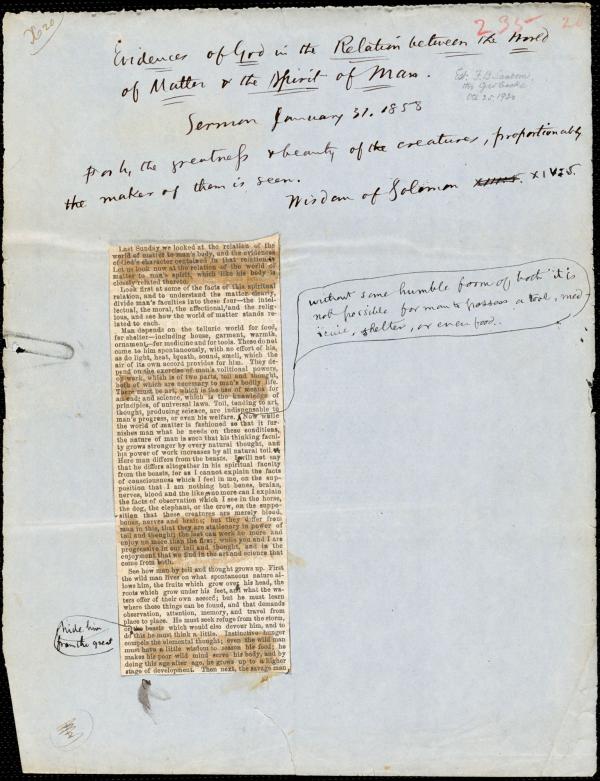 235
Evidences of God in the Relation between the World
of Matter & the Spirit of Man.
Sermon January 31. 1858
For by the greatness & beauty of the creatures, proportionably
the maker of them is seen.
Wisdom of Solomon XIV:5.
Last Sunday we looked at the relation of the
world of matter to man's body, and the evidences
of God's character contained in that relation.
Let us look now at the relation of the world of
matter to man's spirit, which like his body is
closely related thereto.
Look first at some of the facts of this spiritual
relation, and to understand the matter clearly,
divide man's faculties into these four—the intel-
lectual, the moral, the affectional, and the relig-
ious, and see how the world of matter stands re-
lated to each.
Man depends on the telluric world for food,
for shelter—including house, garment, warmth,
ornament,—for medicine and for tools. These do not
come to him spontaneously, with no effort of his,
as do light, heat, breath, sound, smell, which the
air of its own accord provides for him. They de-
pend on the exercise of man's volitional powers,
of work, which is of two parts, toil and thought,
both of which are necessary to man's bodily life.
There must be art, which is the use of means for
an end; and science, which is the knowledge of
principles, of universal laws. Toil, tending to art,
thought, producing science, are indispensable to
man's progress, or even his welfare. Now while
the world of matter is fashioned so that it fur-
nishes man what he needs on these conditions,
the nature of man is such that his thinking facul-
ty grows stronger by every natural thought, and
his power of work increases by all natural toil.
Here man differs from the beasts. I will not say
that he differs altogether in his spiritual faculty
from the beasts, for as I cannot explain the facts
of consciousness which I feel in me, on the sup-
position that I am nothing but bones, brains,
nerves, blood and the like, no more can I explain
the facts of observation which I see in the horse,
the dog, the elephant, or the crow, on the suppo-
sition that those creatures are merely blood,
bones, nerves and brains; but they differ from
man in this, that they are stationary in power of
toil and thought; the last can work no more and
enjoy no more than the first; while you and I are
progressive in our toil and thought, and in the
enjoyment that we find in the art and science that
come from both.
See how man by toil and thought grows up. First
the wild man lives on what spontaneous nature al-
lows him, the fruits which grow over his head, the
roots which grow under his feet, and what the wa-
ters offer of their own accord; but he must learn
where these things can be found, and that demands
observation, attention, memory, and travel from
place to place. He must seek refuge from the storm,
the beasts which would also devour him, and to
do this he must think a little. Instinctive hunger
compels the elemental thought; even the wild man
must have a little wisdom to season his food; he
makes his poor wild mind serve his body, and by
doing this age after age, he grows up to a higher
stage of development. Then next, the savage man
without some humble form of both it is
not possible for man to possess a tool, med
icine, shelter, or even food.
hide him
from the great